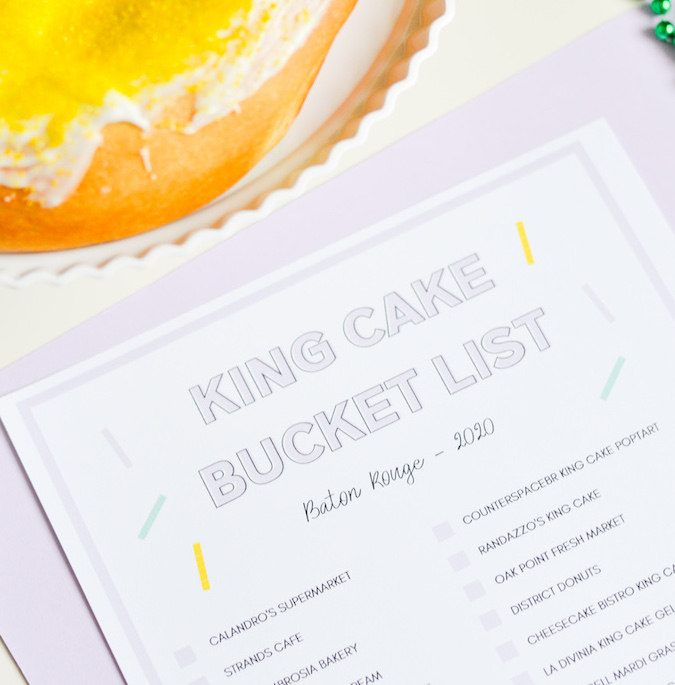 KING CAKE
BUCKET LIST
Baton Rouge - 2020
CALANDRO'S SUPERMARKET
STRANDS CAFE
BAKERY
COUNTERSPACEBR KING CAKE POPTART
RANDAZZO'S KING CAKE
OAK POINT FRESH MARKET
DISTRICT DONUTS
CHEESECAKE BISTRO KING
LA DIVINIA KING CAKE
MARDI